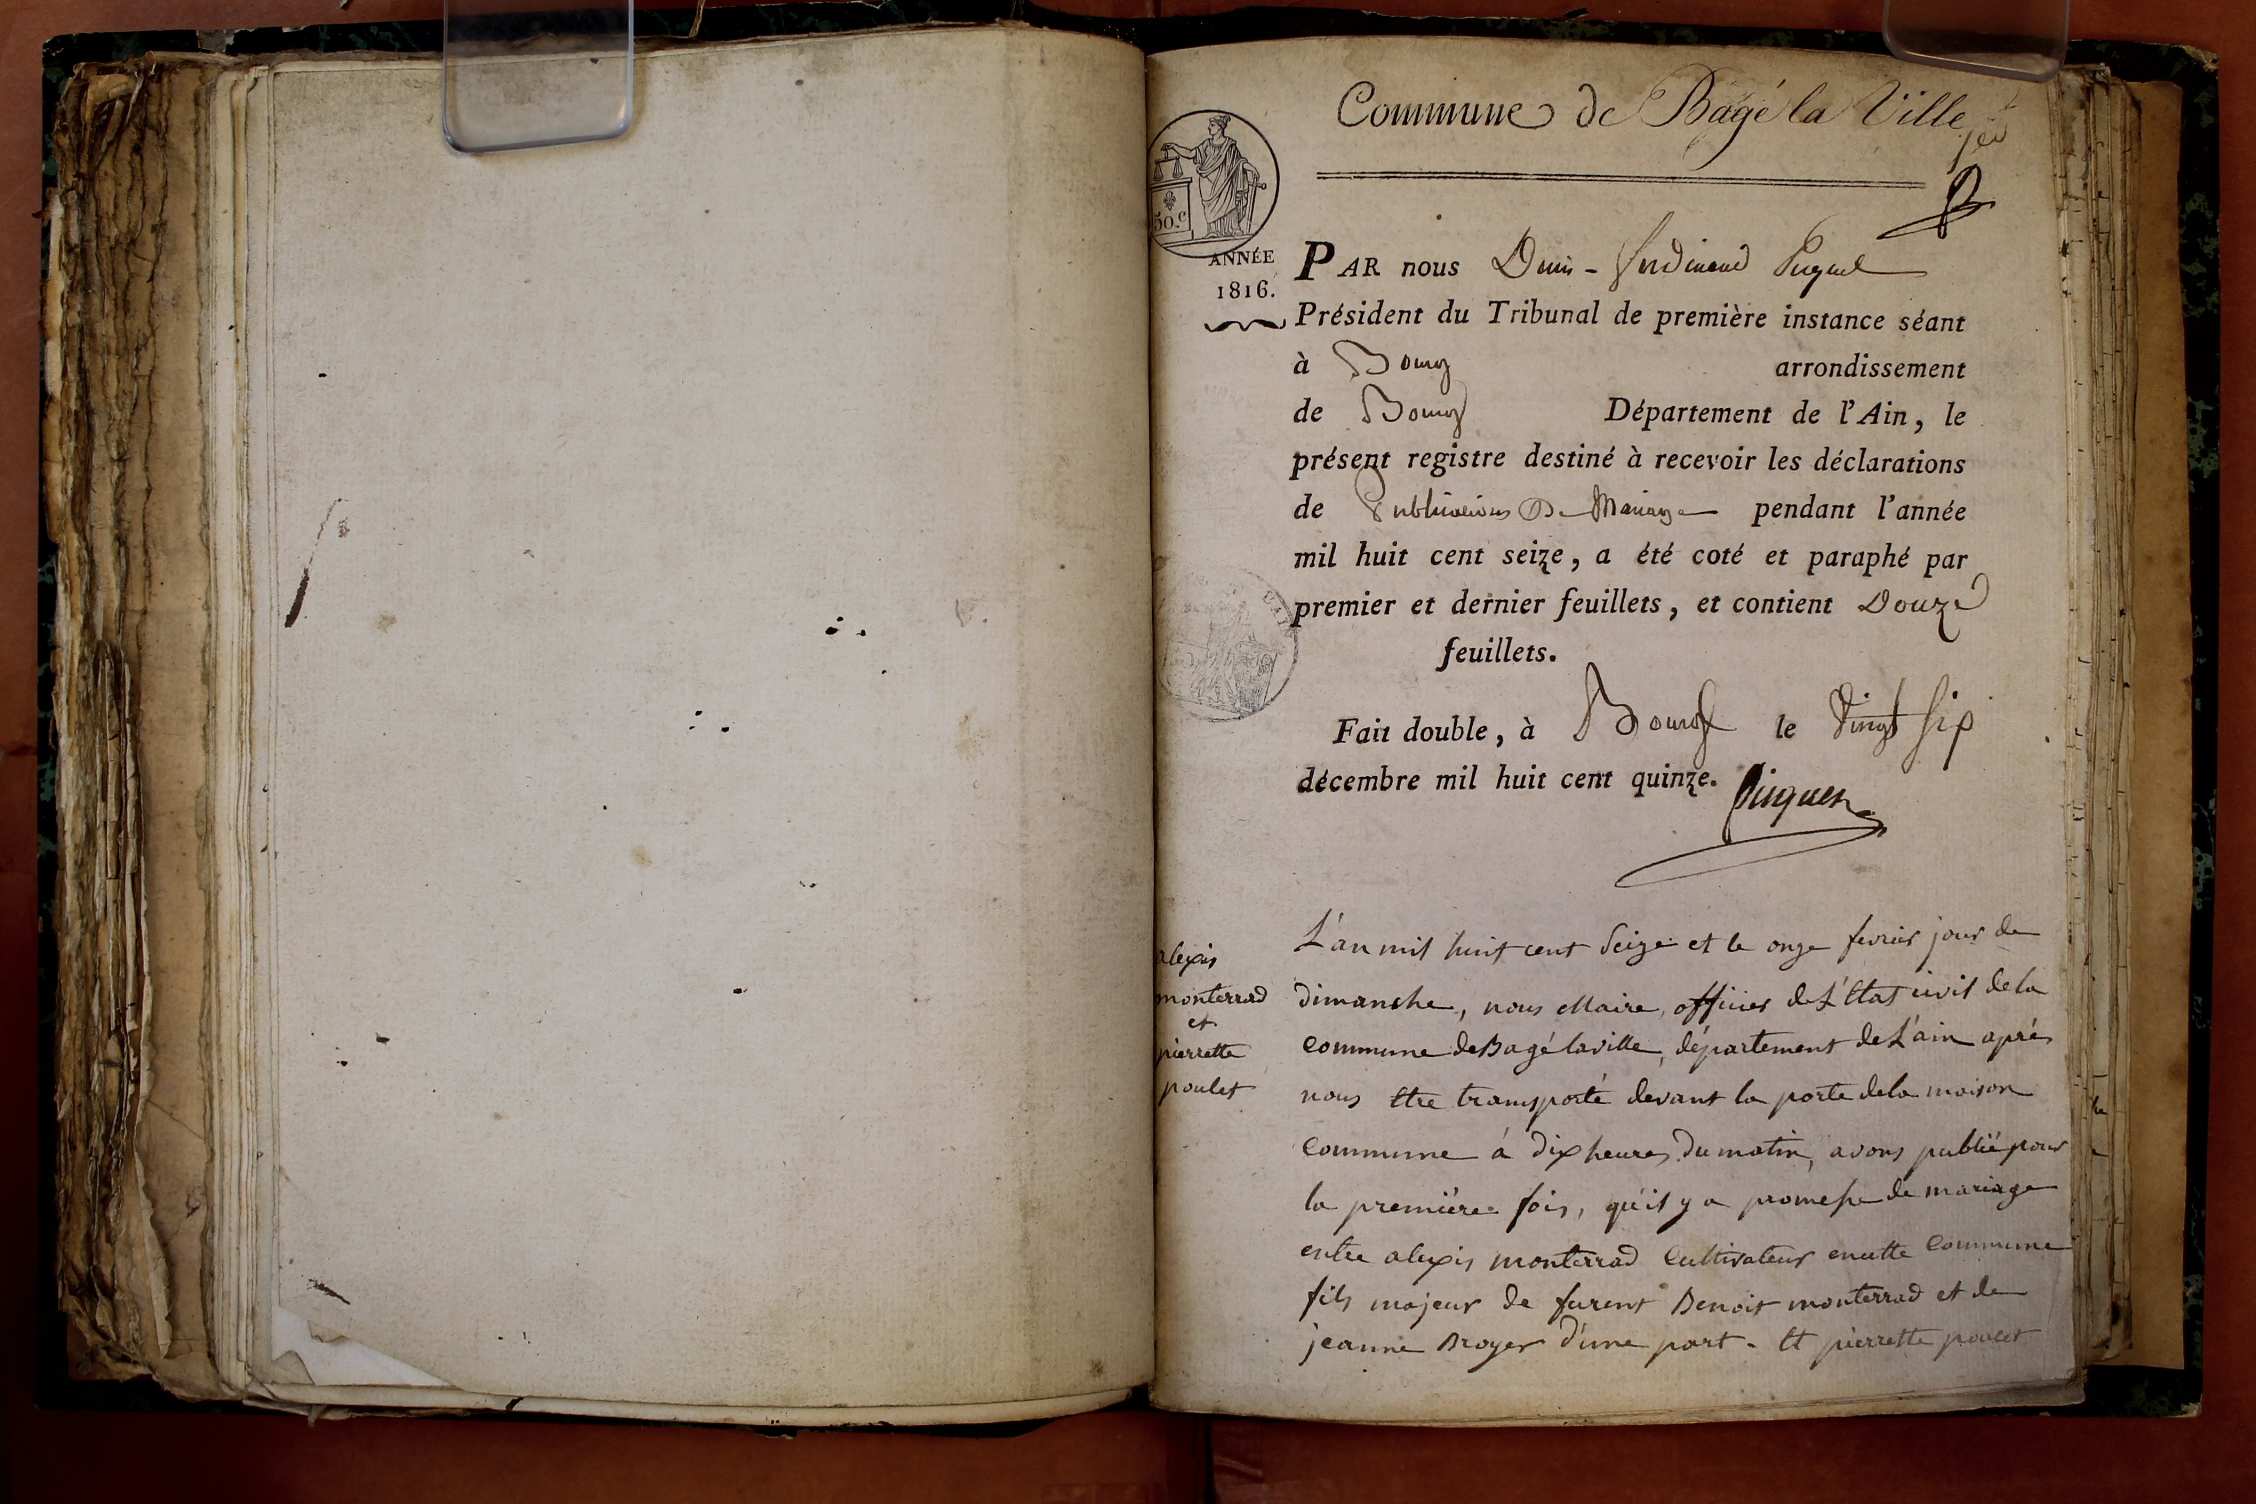 Commune de Bagé la Ville
50.c
ANNÉE
1816.
PAR nous Denis - ferdinand Picquet
Président du Tribunal de première instance séant
à Bourg arrondissement
de Bourg Département de l'Ain, le
présent registre destiné à recevoir les déclarations
de Publications De Mariage pendant l'année
mil huit cent seize, a été coté et paraphé par
premier et dernier feuillets, et contient Douze
feuillets.
Fait double, à Bourg le Vingt six
décembre mil huit cent quinze.
Picquet
alexis
monterrad
et
pierrette
poulet
L'an mil huit cent Seize et le onze fevrier jour de
dimanche, nous Maire, officier de L'Etat civil de la
commune de Bagé laville, département de L'ain après
nous Etre transporté devant la porte dela maison
Commune à dix heures du matin, avons publié pour
la première fois, qu'il y a promesse de mariage
entre alexis monterrad Cultivateur encette Commune
fils majeur de furent Benoit monterrad et de
jeanne Broyer d'une part - Et pierrette poulet